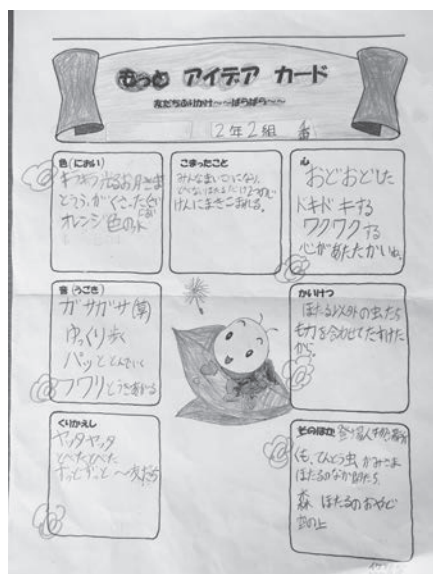 もっと アイデア カード
友だちふりかけ～～ぱらぱら～～
2年2組 番
色(におい)
キラキラ光るお月さま
とうろうがくさったくさいにおい
オレンジ色の
こまったこと
みんなまいごになり、
じけんにまきこまれる。
心
おどおどした
ドキドキする
ワクワクする
心があたたかいね。
音(うごき)
ガサガサ(草)
ゆっくり歩く
パッととんでいく
フワリとうきあがる
かいけつ
ほたる以外の虫たち
も力を合わせてたすけた
から。
くりかえし
ヤッタヤッタ
とべたとべた
ずっとずっと～友だち
そのほか 登場人物
くも、てんとう虫、かみさま
ほたるのなか間たち、
森 ほたるのおやじ
空の上